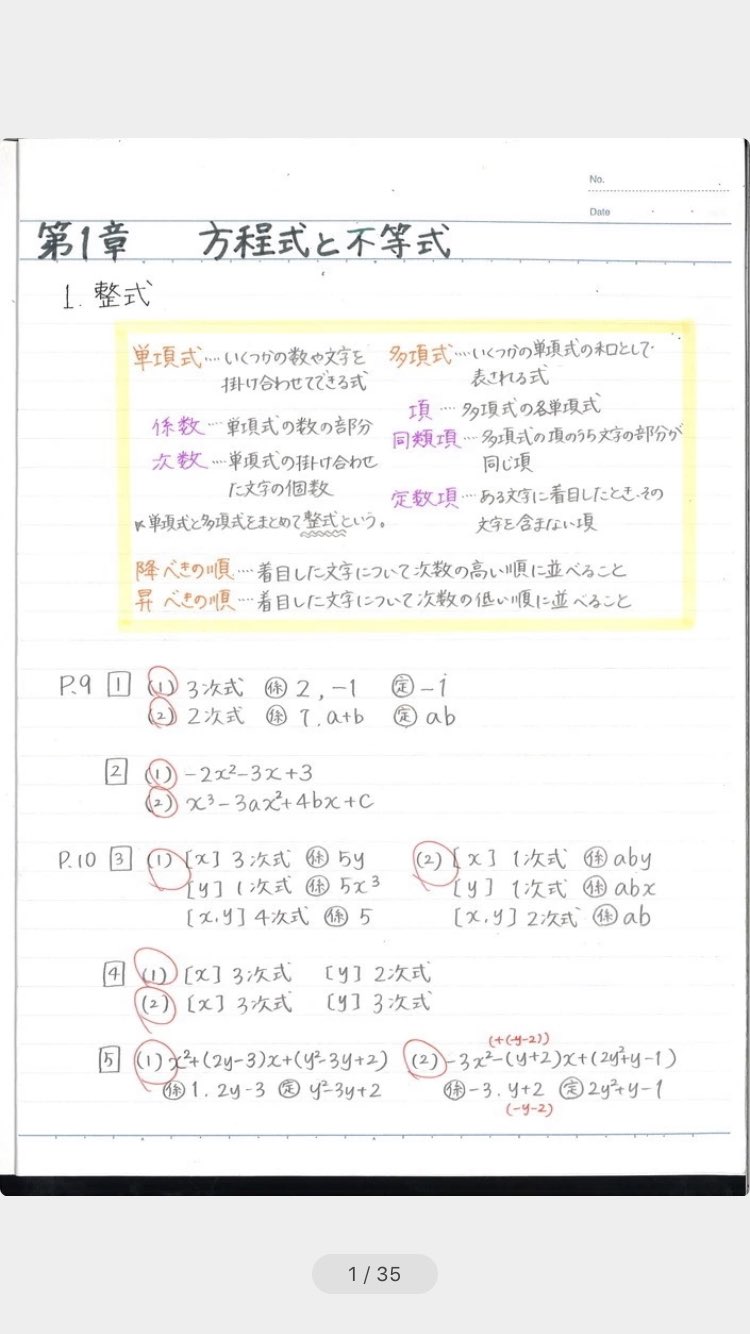 No.
Date
第1章 方程式と不等式
1. 整式
単項式…いくつかの数や文字を
掛け合わせてできる式
係数…単項式の数の部分
次数…単項式の掛け合わせ
た文字の個数
単項式と多項式をまとめて整式という。
多項式…いくつかの単項式の和として
表される式
項…多項式の各単項式
同類項…多項式の項のうち文字の部分が
同じ項
定数項…ある文字に着目したとき、その
文字を含まない項
降べきの順…着目した文字について次数の高い順に並べること
昇べきの順…着目した文字について次数の低い順に並べること
P.9 1 (1) 3次式 係 2, -1 定 -1
(2) 2次式 係 7, a+b 定 ab
2 (1) -2x²-3x+3
(2) x³-3ax²+4bx+c
P.10 3 (1) [x] 3次式 係 5y (2) [x] 1次式 係 aby
[y] 1次式 係 5x³ [y] 1次式 係 abx
[x,y] 4次式 係 5 [x,y] 2次式 係 ab
4 (1) [x] 3次式 [y] 2次式
(2) [x] 3次式 [y] 3次式
(+(-y-2))
5 (1) x²+(2y-3)x+(y²-3y+2) (2) -3x²-(y+2)x+(2y²+y-1)
係 1, 2y-3 定 y²-3y+2 係 -3, y+2 定 2y²+y-1
(-y-2)
1 / 35